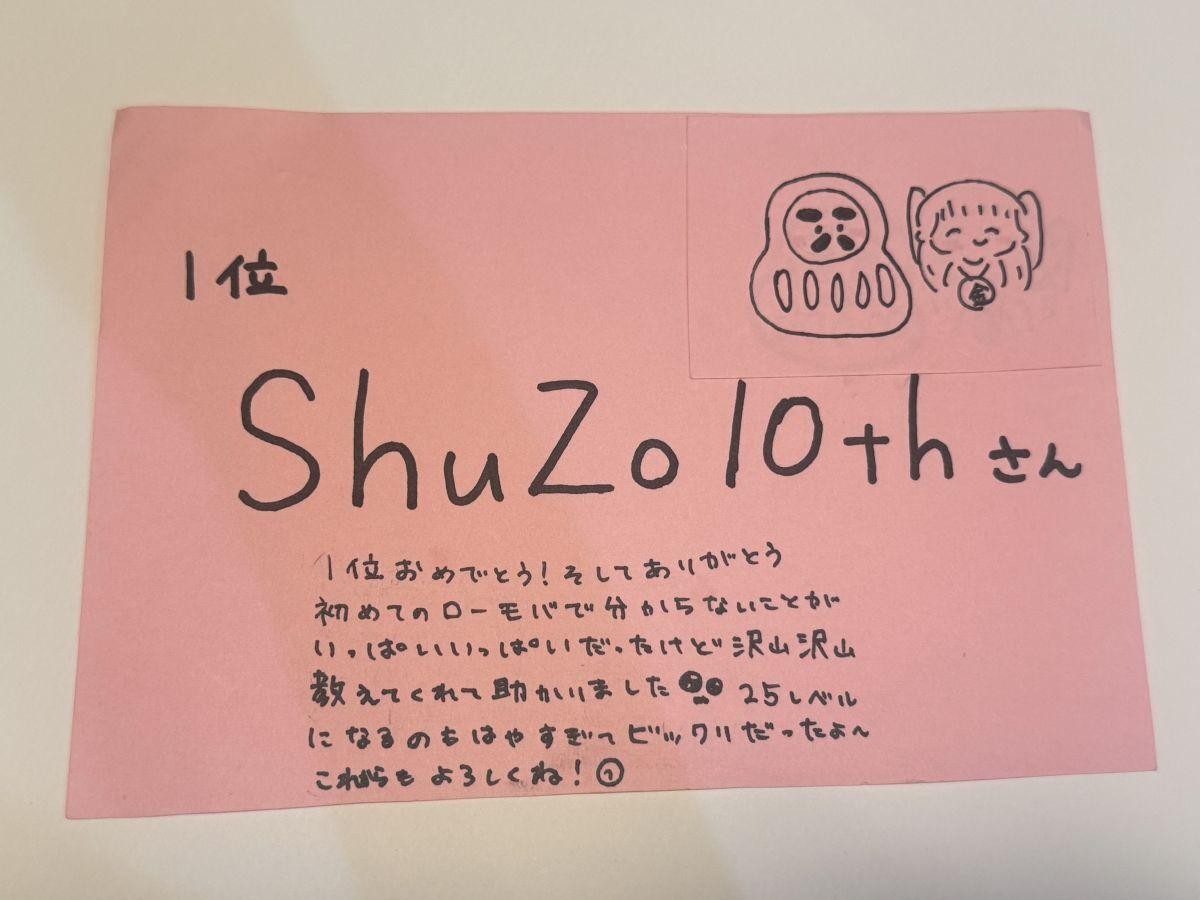 金
1位
ShuZo10thさん
1位おめでとう！そしてありがとう
初めてのローモバで分からないことが
いっぱいいっぱいだったけど沢山沢山
教えてくれて助かりました 25レベル
になるのもはやすぎてビックリだったよ〜
これからもよろしくね！